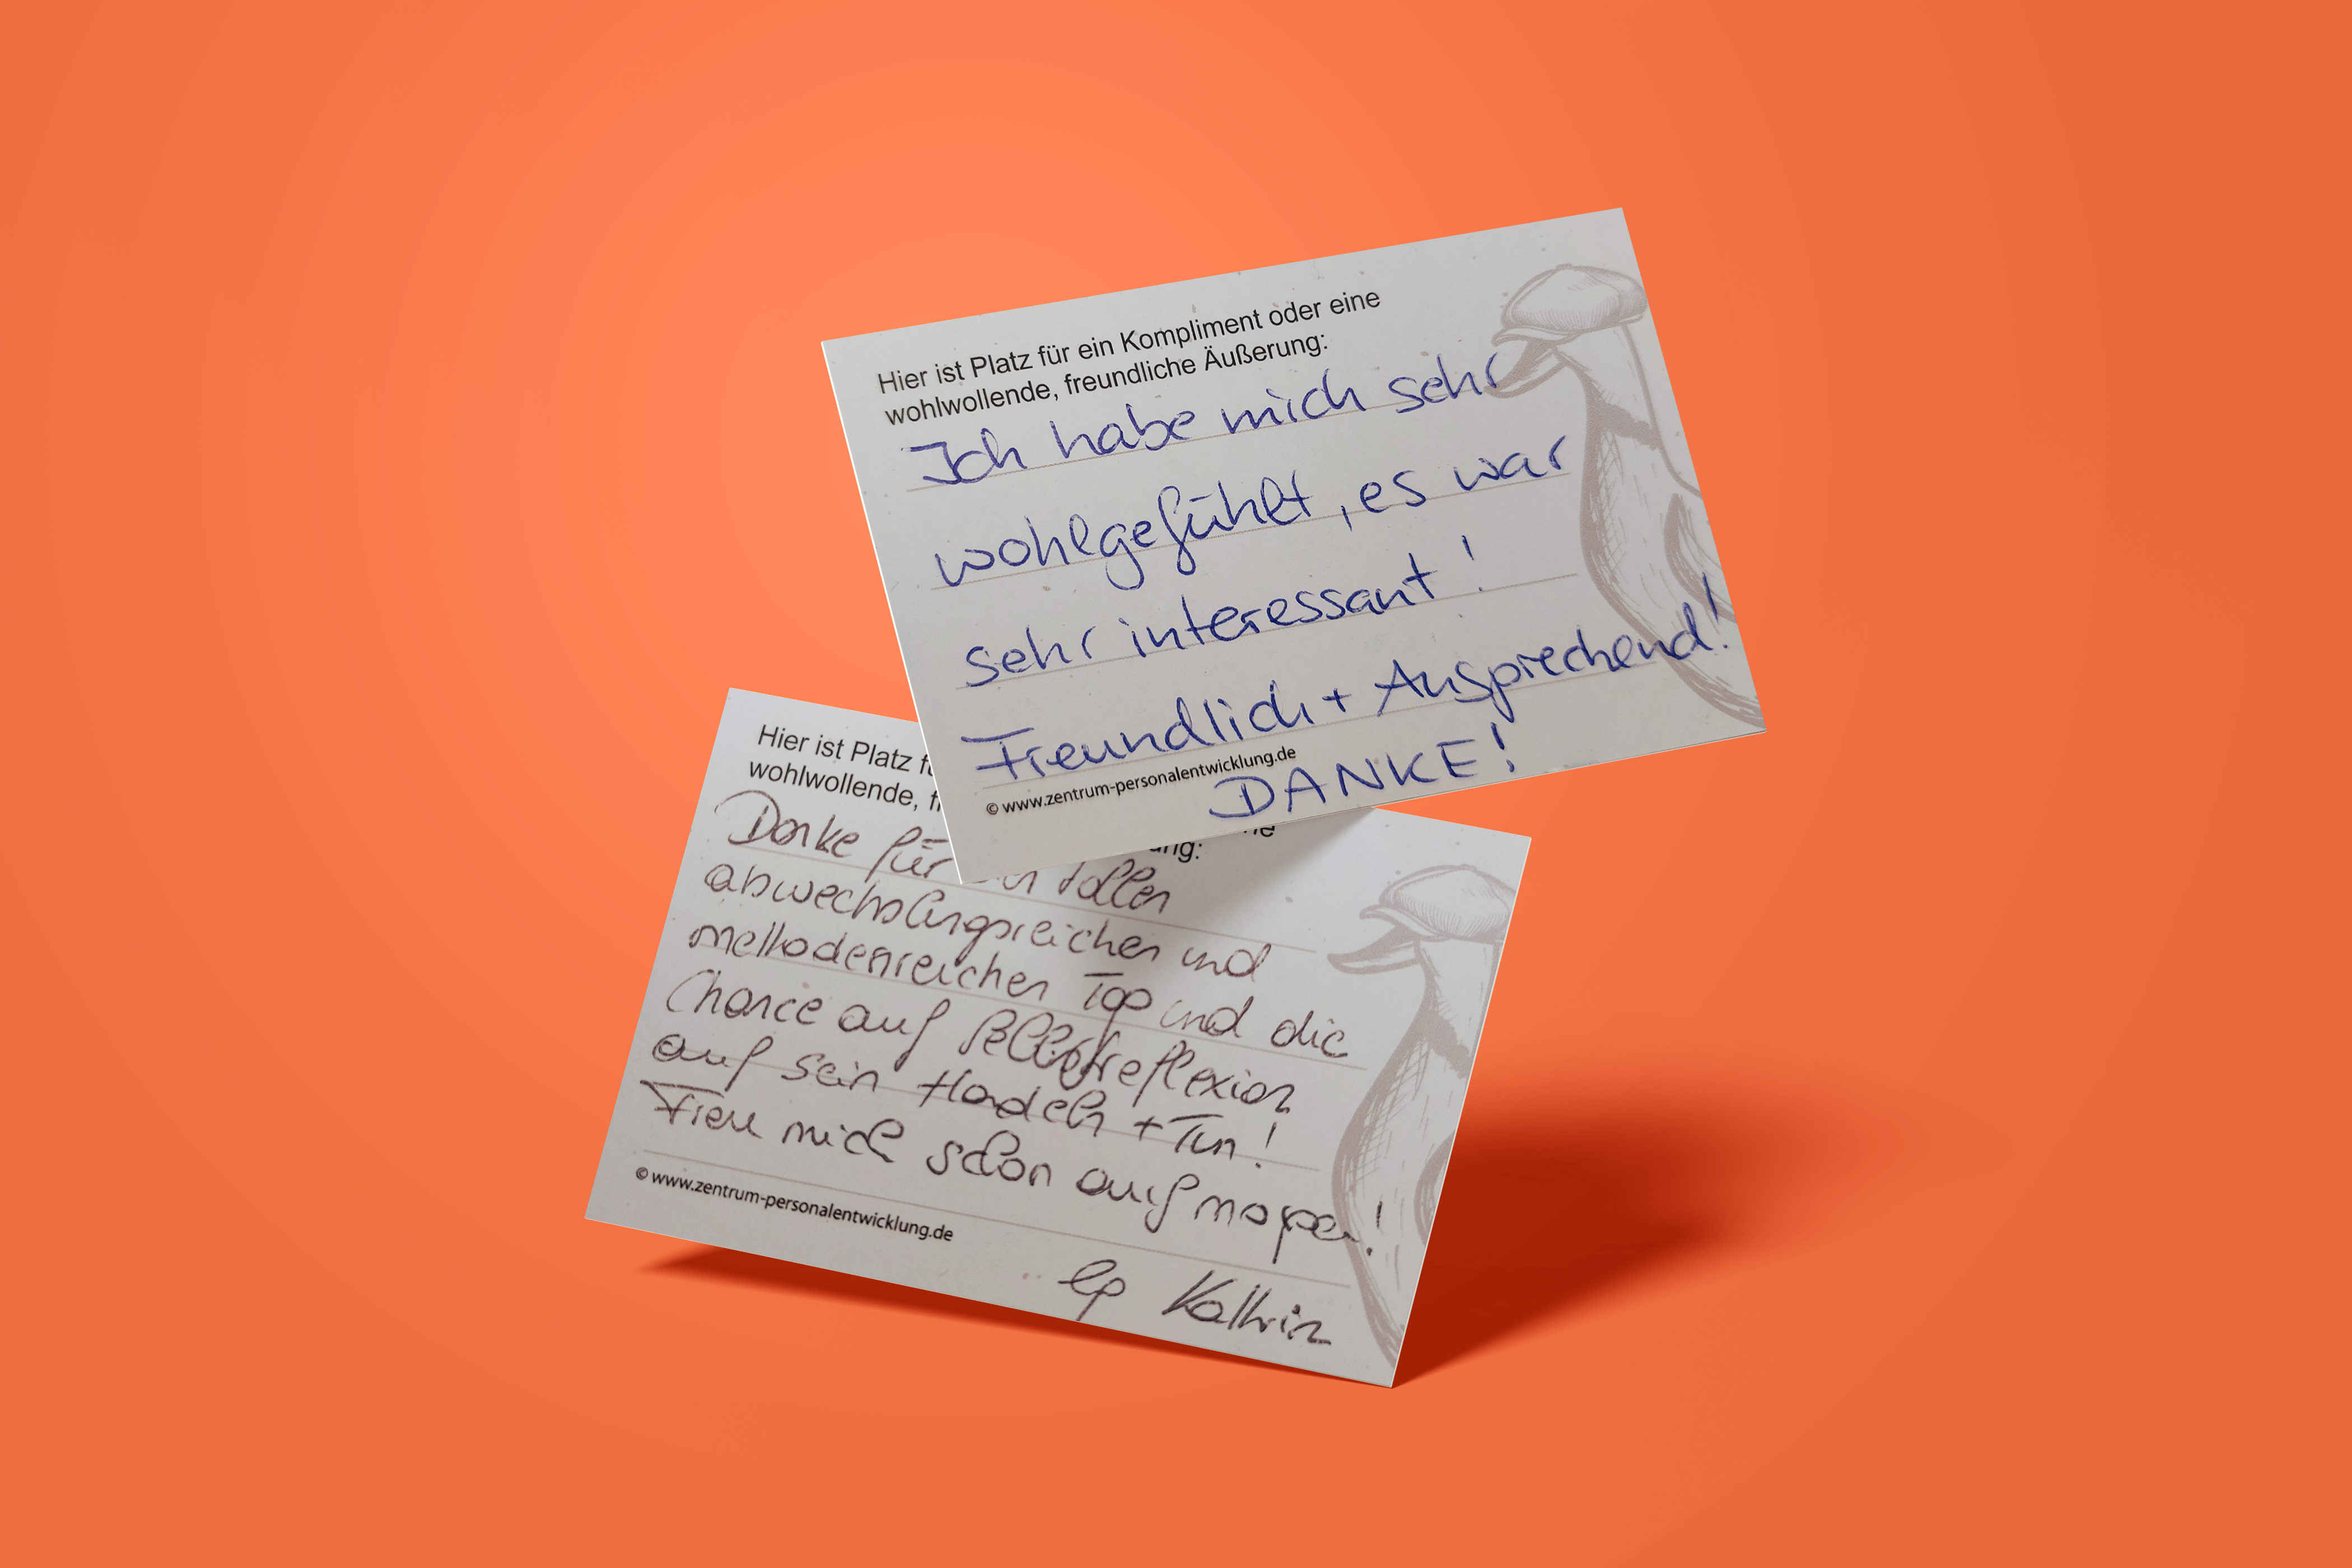 Hier ist Platz für ein Kompliment oder eine
wohlwollende, freundliche Äußerung:
Ich habe mich sehr
wohlgefühlt, es war
sehr interessant!
Freundlich + Ansprechend!
© www.zentrum-personalentwicklung.de
DANKE!
Hier ist Platz
wohlwollende,
Danke für tollen
abwechslungsreichen und
methodenreichen Tag und die
Chance auf Selbstreflexion
auf sein Handeln + Tun!
Freu mich schon auf morgen!
© www.zentrum-personalentwicklung.de
Kathrin